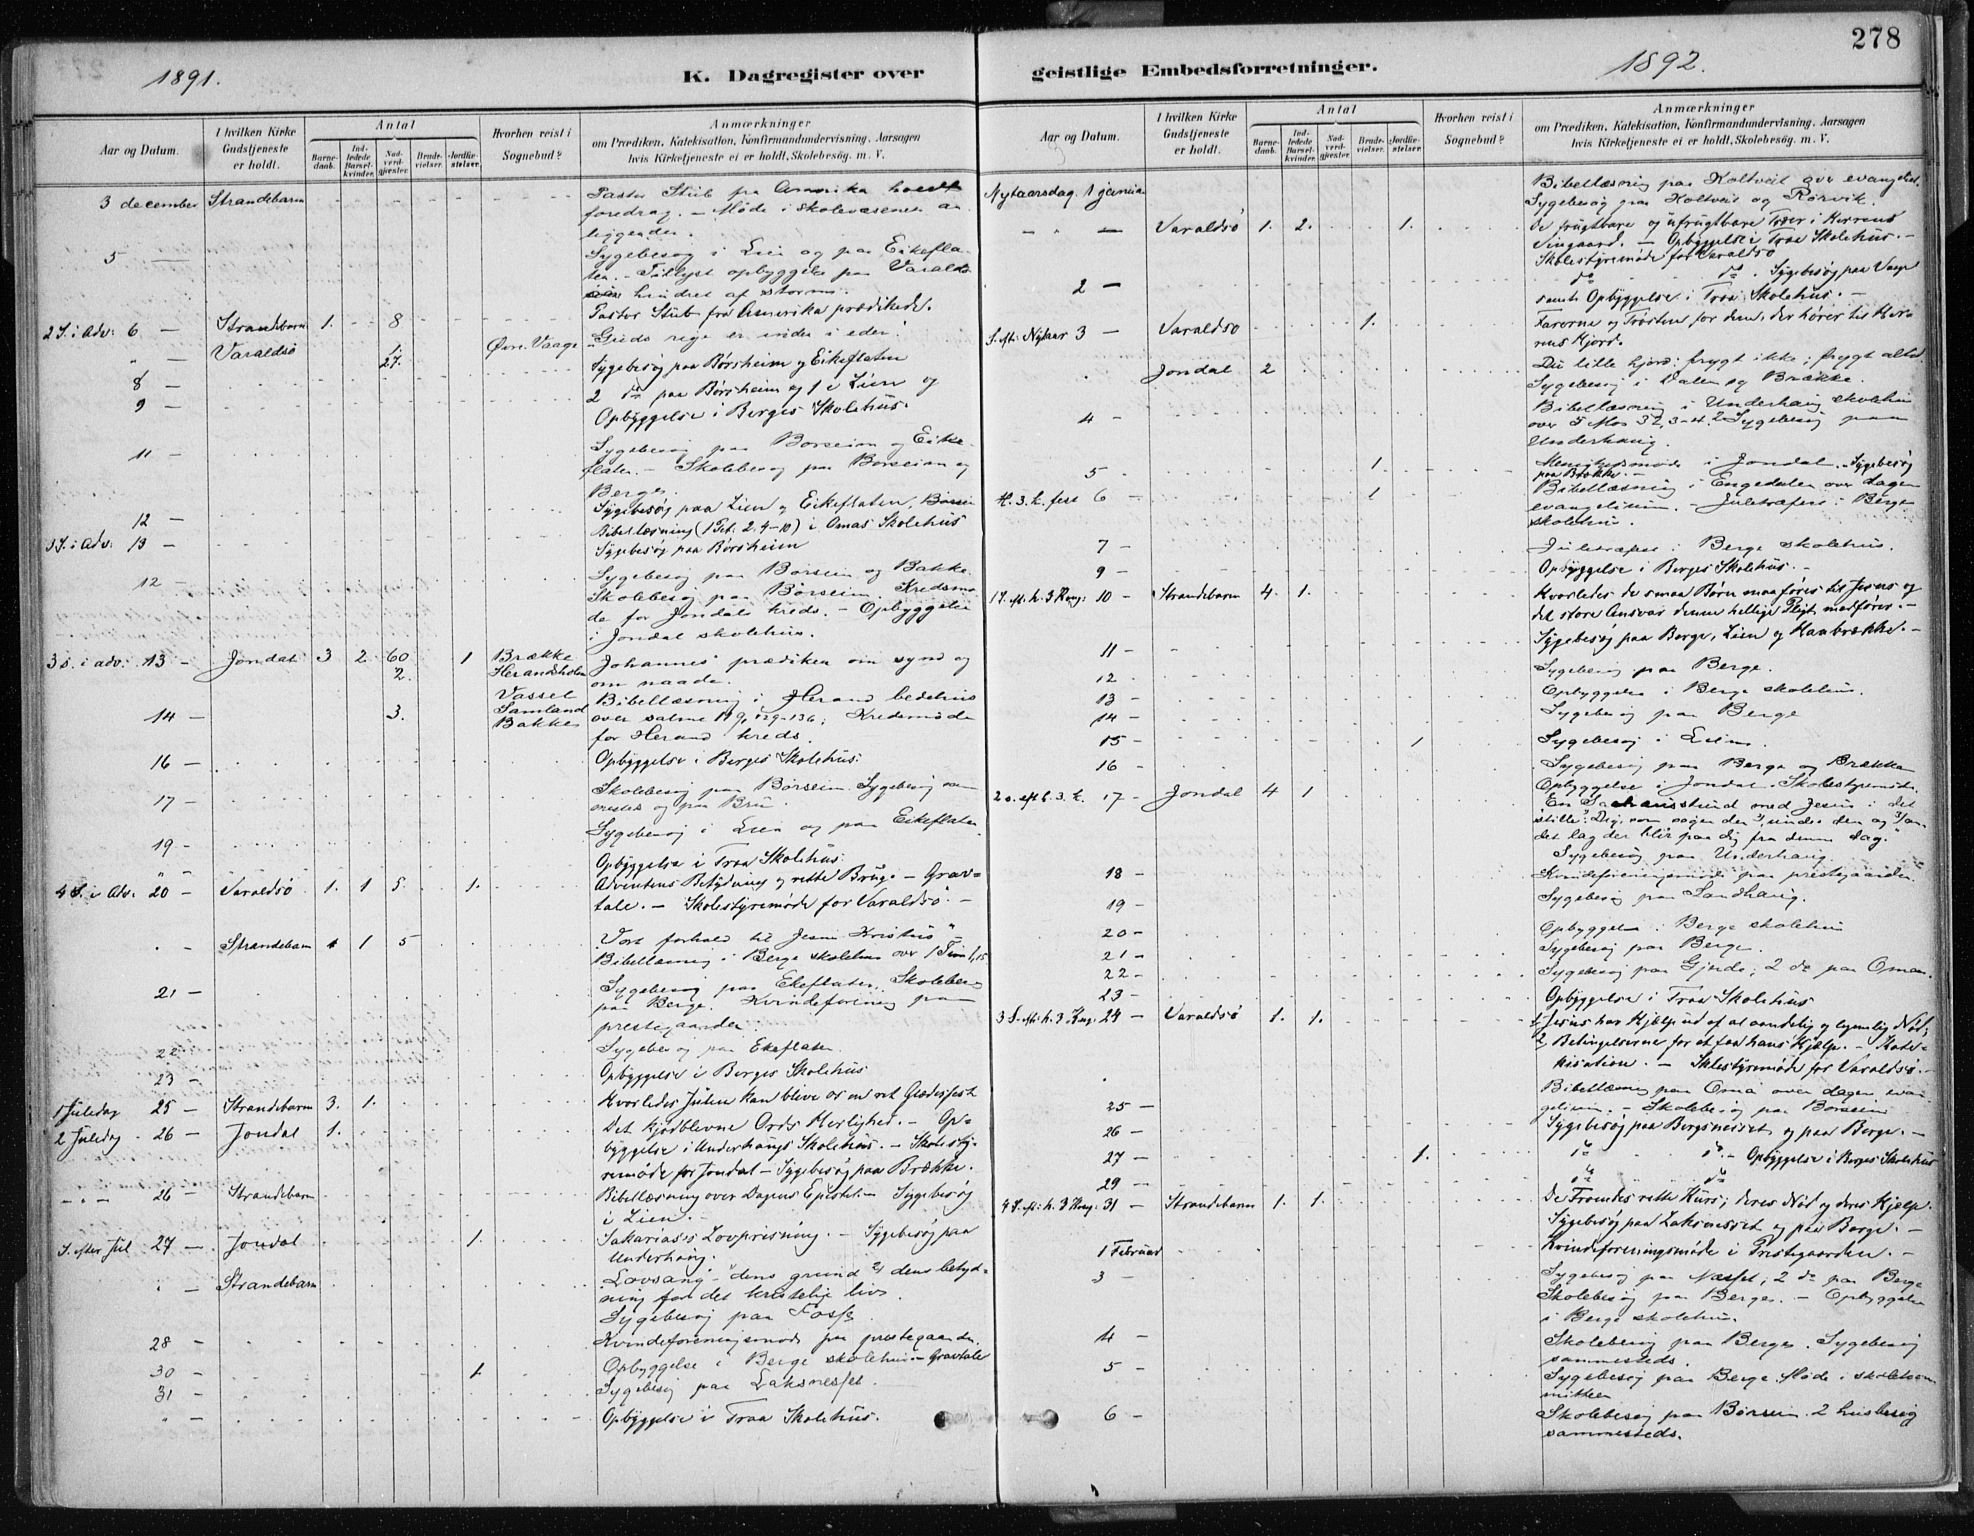 278
1891.
K. Dagregister over
geistlige Embedsforretninger.
1892.
Aar og Datum.
I hvilken Kirke Gudstjeneste er holdt.
Antal
Barnedaab.
Indledede Barselkvinder.
Nadverdgjæster.
Brudevielser.
Jordfæstelser.
Hvorhen reist i Sognebud?
Anmærkninger
om Prædiken, Katekisation, Konfirmandundervisning, Aarsagen
hvis Kirketjeneste ei er holdt, Skolebesøg. m. V.
3 december Strandebarn
Pastor Stub fra Amerika
foredrag. — Møde i skolevæsenets an
liggender.
5 —
Sygebesøg i Lien og paa Eikefla-
ten. - Tillyst opbyggelse paa Varaldsø
hindret af storm.
2 S. i Adv: 6 — Strandebarn 1. 8
Pastor Stub fra Amerika prædikede.
" — Varaldsø 27. Øvr. Vaage
"Guds rige er inden i eder."
8 —
Sygebesøg paa Børsheim og Eikeflaten
9 —
2 do paa Børsheim og 1 i Lien og
Opbyggelse i Berges Skolehus.
11 —
Sygebesøg paa Børseim og Eike-
flaten. — Skolebesøg paa Børseim og
Berge.
12 —
Sygebesøg paa Lien og Eikeflaten,
Bibellæsning (1 Pet. 2. 4-10) i Omas Skolehus
3 S. i Adv: 13 —
Sygebesøg paa Børsheim
12 —
Sygebesøg paa Børseim og Bakke.
Skolebesøg paa Børseim. Kredsmø-
de for Jondals kreds. — Opbyggelse
i Jondal skolehus.
3 s. i adv: 13 — Jondal 3 2 60 1 Brække
2. Herandsholm
Johannes' prædiken om synd og
om naade.
14 — 3. Vassel
Samland
Bakke
Bibellæsning i Herand bedehus
over salme 119, 129-136; Kredsmøde
for Herand kreds.
16 —
Opbyggelse i Berges Skolehus.
17 —
Skolebesøg paa Børseim. Sygebesøg sam
mesteds og paa Bru.
19 —
Sygebesøg i Lien og paa Eikeflaten.
" —
Opbyggelse i Traa Skolehus.
4 S. i Adv. 20 — Varaldsø 1. 1 5. 1.
Adventens Betydning og rette Brug. — Grav=
tale. — Skolestyremøde for Varaldsø. —
" — Strandebarn 1 5
"Vort forhold til Jesus Kristus"
Bibellæsning i Berge skolehus over 1 Tim 1, 15
21 —
Sygebesøg paa Ekeflaten. Skolebesøg
paa Berge. Kvindeforening paa
prestegaarden.
22 —
Sygebesøg paa Ekeflaten.
23 —
Opbyggelse i Berges Skolehus
1 Juledag 25 — Strandebarn 3. 1.
Hvorledes Julen kan blive os en ret Glædesfest
2 Juledag. 26 — Jondal 1.
Det kjødblevne Ords Herlighed. — Op=
byggelse i Underhaugs Skolehus. — Skolesty-
remøde for Jondal — Sygebesøg paa Brække.
— " — 26 — Strandebarn
Bibellæsning over Dagens Epistel. — Sygebesøg
i Lien. —
S. efter Jul 27 — Jondal 1.
Sakarias's Lovprisning. — Sygebesøg paa
Underhaug.
" — Strandebarn
Lovsang — dens grund og dens betyd=
ning for det kristelige livs.
Sygebesøg paa Foss
28 —
Kvindeforeningsmøde paa prestegaarden.
30 — 1.
Opbyggelse i Berge skolehus — Gravtale
31 —
Sygebesøg paa Laksnesset.
" —
Opbyggelse i Traa Skolehus.
Aar og Datum.
I hvilken Kirke Gudstjeneste er holdt.
Antal
Barnedaab.
Indledede Barselkvinder.
Nadverdgjæster.
Brudevielser.
Jordfæstelser.
Hvorhen reist i Sognebud?
Anmærkninger
om Prædiken, Katekisation, Konfirmandundervisning, Aarsagen
hvis Kirketjeneste ei er holdt, Skolebesøg. m. V.
Nytaarsdag 1 januar
Bibellæsning paa Holtveit over evangeliet.
Sygebesøg paa Holtveit og Rørvik.
— " — Varaldsø 1. 2. 1.
De frugtbare og ufrugtbare Træer i Herrens
Vingaard. — Opbyggelse i Traa Skolehus. —
Skolestyremøde for Varaldsø
2 —
do do. Sygebesøg paa
samt Opbyggelse i Traa Skolehus. —
S. eft. Nytaar 3 — Varaldsø 1.
Farerne og Trøsten for dem, der hører til Her-
rens Hjord.
Jondal 2
Du lille hjord: frygt ikke; frygt altid
Sygebesøg i Dalen og Brække.
4 —
Bibellæsning i Underhaug skolehus
over 5 Mos 32, 3-4. 2 Sygebesøg paa
Underhaug.
5 — 1
Menighedsmøde i Jondal. Sygebesøg
paa Brække. —
H. 3. k. fest 6 — 1
Bibellæsning i Engedalen over dagens
evangelium. — Juletræfest i Berge
skolehus.
7 —
Juletræfest i Berge skolehus.
9 —
Opbyggelse i Berges Skolehus. —
1 S. eft. h. 3 Kong: 10 — Strandebarn 4. 1.
Hvorledes de smaa Børn maa føres til Jesus og
det store Ansvar denne hellige Pligt medfører. —
Sygebesøg paa Berge, Lien og Haubrække. —
11 —
Sygebesøg paa Berge.
12 —
Opbyggelse i Berge skolehus.
13 —
14 —
Sygebesøg paa Berge
15 — 1
Sygebesøg i Lien.
16 —
Sygebesøg paa Berge og Brække
Opbyggelse i Jondal. Skolestyremøde.
2 s. eft h. 3. k. 17 — Jondal 4 1
En med Jesus i det
stille: "Dig, som søger den
det lag der blir paa dig fra denne dag."
Sygebesøg paa Underhaug
18 —
Kvindeforeningsmøde paa prestegaarden.
19 —
Sygebesøg paa Sandhaug.
20 —
Opbyggelse i Berge skolehus
21 —
Sygebesøg paa Berge.
22 —
Sygebesøg paa Gjerde; 2 do paa Omaa.
23 —
Opbyggelse i Traa Skolehus
3 S. eft. h. 3 Kong: 24 — Varaldsø 1. 1.
1, Jesus har Hjælp ud af al aandelig og legemlig Nød;
2, Betingelserne for at faa hans Hjælp. — Kate-
kisation. — Sklestyremøde for Varaldsø. —
25 —
Bibellæsning paa Oma over dagens evan-
gelium. — Skolebesøg paa Børseim
26 —
Sygebesøg paa Bergsnesset og paa Berge. —
27 — 1.
do do — Opbyggelse i Berges Skolehus
29 —
do do
4 S. eft. h. 3 Kong: 31 — Strandebarn 1. 1.
De Frommes rette Kurs; deres Nød og deres Hjælp.
Sygebesøg paa Laksnesset og paa Berge. —
1 Februar
Kvindeforeningsmøde i Prestegaarden. —
3 —
Sygebesøg paa Nesset; 2 do paa Berge
Skolebesøg paa Berge. — Opbyggelse
i Berge skolehus.
4 —
Skolebesøg paa Berge. Sygebesøg
sammesteds.
5 —
Sygebesøg paa Berge. Møde i skolekom
mitteen
6 —
Skolebesøg paa Børseim. 2 husbesøg
sammesteds.